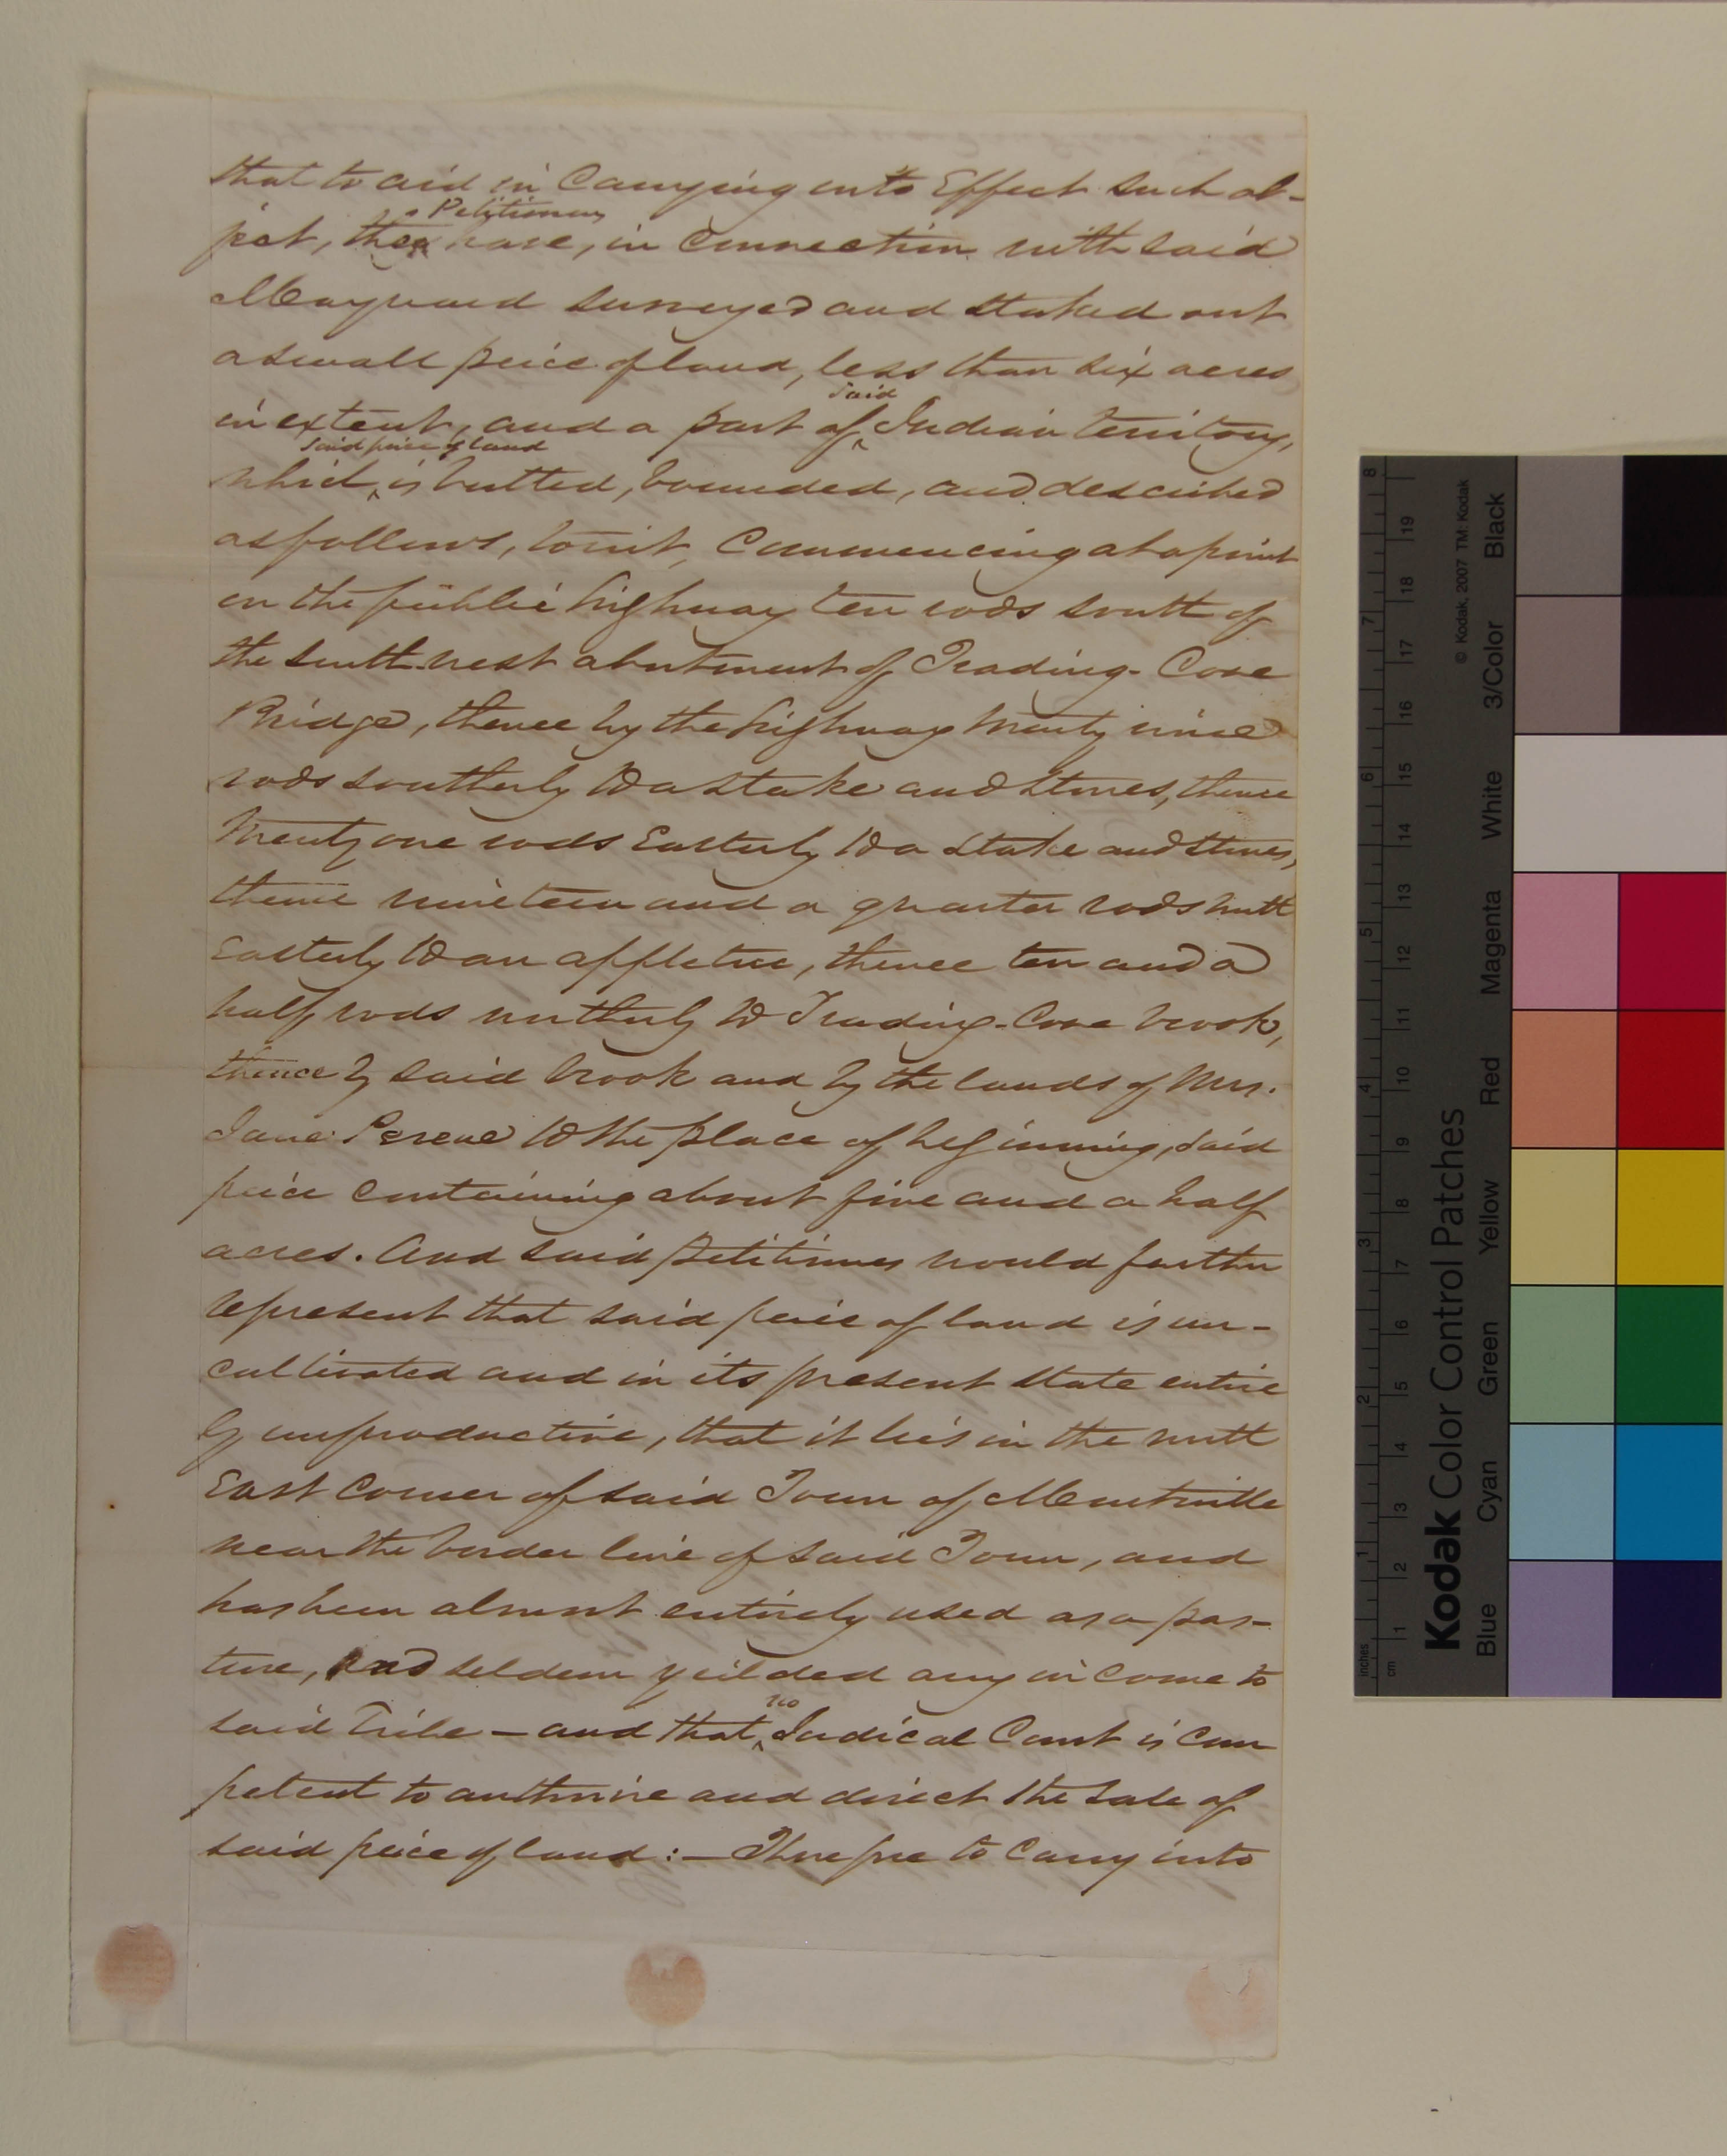 that to aid in Carrying into Effect such ob-
ject, the Petitioners have, in Connection with said
Maynard surveyed and staked out
a small peice of land, less than six acres
in extent, and a part of said Indian territory,
which said peice of land is butted, bounded, and described
as follows, towit, Commencing at a point
on the public highway ten rods south of
the south west abutment of Trading-Cove
Bridge, thence by the highway twenty nine
rods southerly to a stake and stones, thence
twenty one rods Easterly to a stake and stones,
thence nineteen and a quarter rods north
Easterly to an appletree, thence ten and a
half rods northerly to Trading-Cove brook,
thence by said brook and by the lands of Mrs.
Jane to the place of beginning, said
peice containing about five and a half
acres. And said petitioners would further
represent that said peice of land is un-
cultivated and in its present state entire
ly unproductive, that it lies in the north
East Corner of said Town of Montville
near the border line of said Town, and
has been almost entirely used as a pas-
ture, and seldom yeilded any income to
said Tribe - and that no Judical Court is com
petent to authorize and direct the sale of
said peice of land :- Therefore to Carry into
Kodak Color Control Patches
© Kodak, 2007 TM: Kodak
Blue Cyan Green Yellow Red Magenta White 3/Color Black
inches 1 2 3 4 5 6 7 8
cm 1 2 3 4 5 6 7 8 9 10 11 12 13 14 15 16 17 18 19